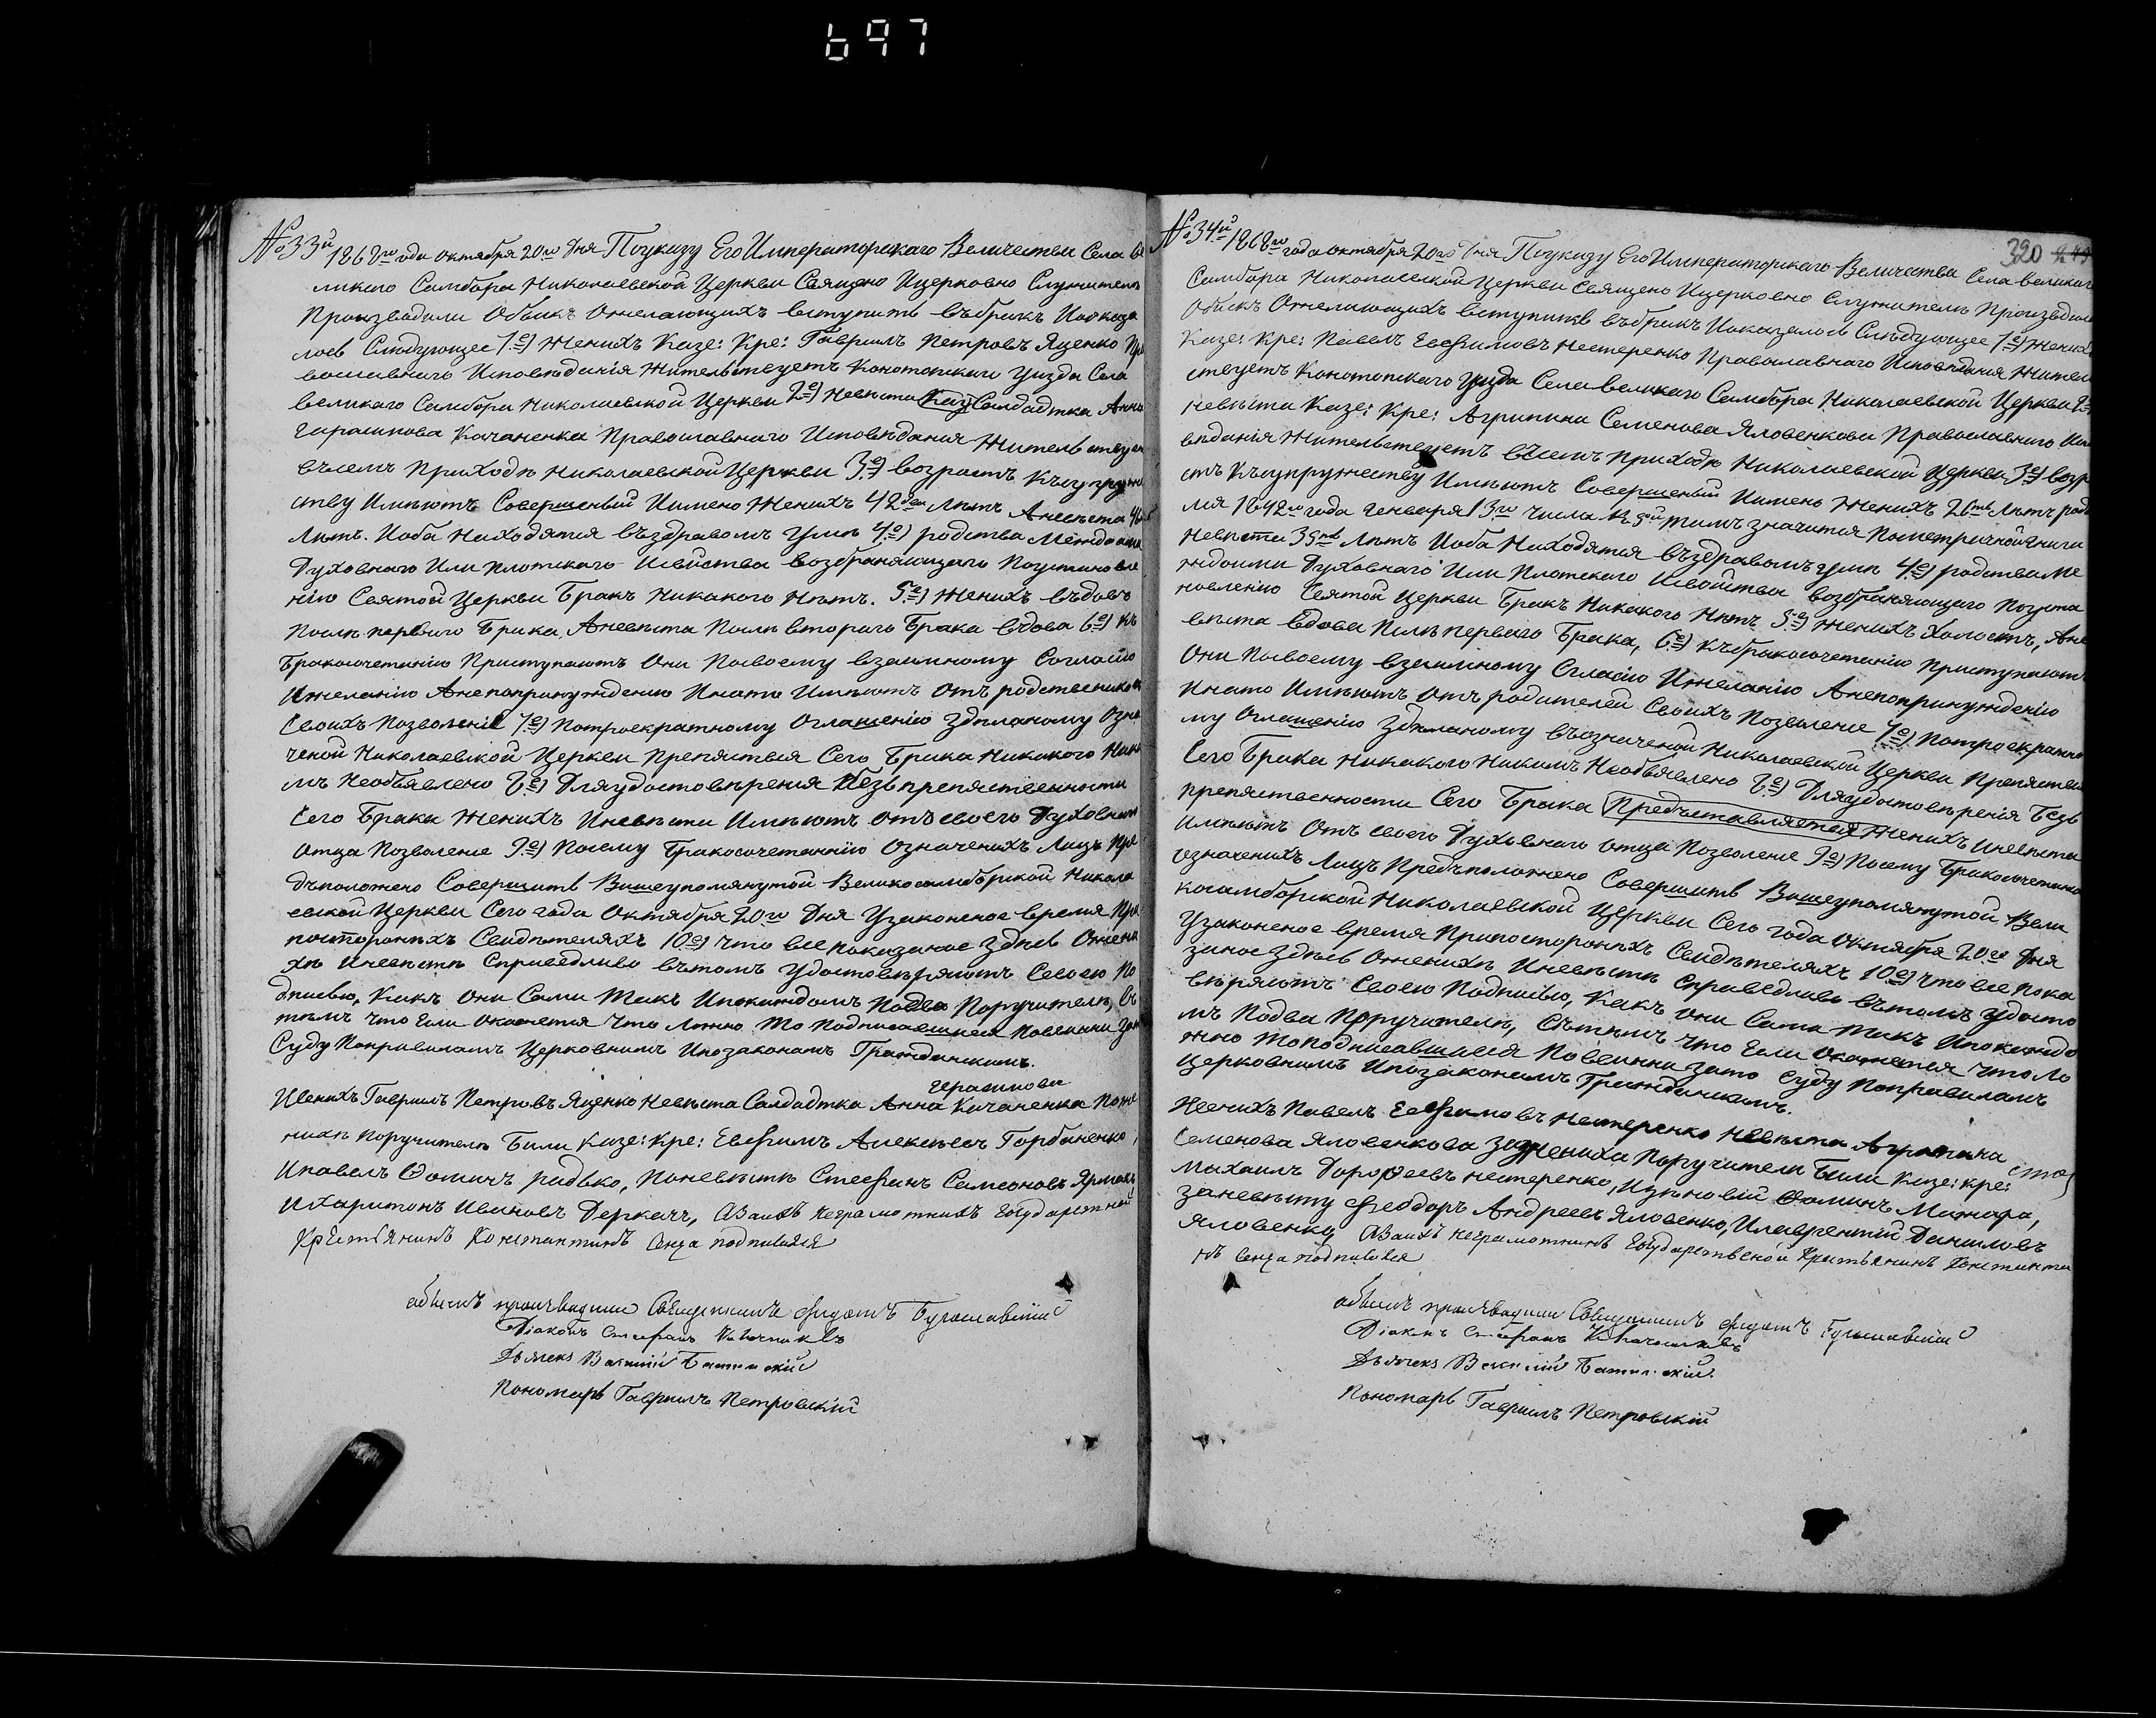 697
№ 33й 1868го года октября 20го дня Поуказу Его Императорскаго Величества Села ве
ликаго Самбора Николаевской Церкви Священо Ицерковно Служители
Производили Обыскъ Ожелающихъ вступить въбракъ Иоказа
лось Слѣдующее 1е) Женихъ Казе: Кре: Гавриилъ Петровъ Яценко Пра
вославнаго Исповѣданія Жительствуетъ Конотопскаго Уѣзда Села
великаго Самбора Николаевской Церкви 2е) Невѣста Каз Салдадтка Анна
Гарасимова Качаненка Православнаго Исповѣданія Жительствуетъ
въсемъ Приходѣ Николаевской Церкви 3е) возрастъ Късупруже
ству Имѣютъ Совершеный Иимено Женихъ 42 Лѣтъ Аневѣста 46
Лѣтъ. Иоба Находятся въздравомъ Умѣ 4е) родства Междоими
Духовнаго Или Плотскаго Исвойства возбраняющаго Поустановле
нію Святой Церкви Бракъ Никакого Нѣтъ. 5е) Женихъ въдовъ
Послѣ перваго Брака, Аневѣста Послѣ втораго Брака вдова 6е) Къ
Бракосочетанію Приступаютъ Они Посвоему взаимному Согласію
Ижеланію Анепопринужденію Инато Имѣютъ Отъ родственников
Своихъ Позволеніе 7е) Потроекратному Оглашенію Здѣланому Озна
ченой Николаевской Церкви Препятствія Сего Брака Никакого Никѣ
мъ Необъявлено 8е) Дляудостовѣренія Безъпрепятственности
Сего Брака Женихъ Иневѣста Имѣютъ Отъ своего Духовнаго
Отца Позволеніе 9е) Посему Бракосочетанію Означеныхъ Лицъ Пре
дъположено Совершить Вышеупомянутой Великосамборской Никола
евской Церкви Сего года Октября 20го Дня Узаконеное время При
посторонихъ Свидѣтеляхъ 10е) Что все показаное здѣсь Ожени
хѣ Иневѣстѣ Справедливо вътомъ Удостовѣряютъ Своею По
дписью, Какъ Они Сами Такъ Ипокаждомъ Подва Поручителя, Съ
тѣмъ Что Если Окажется Что Ложно То Подписавшиеся Повинны Зато
Суду Поправиламъ Церковнымъ Ипозаконамъ Гражданскимъ.
Герасимова
Женихъ Гавриилъ Петровъ Яценко Невѣста Салдадтка Анна Качаненка Поже
нихѣ Поручители Были Казе: Кре: Евфимъ Алексѣевъ Горбаненко,
Ипавелъ Фоминъ радько, Поневѣстѣ Стефанъ Самсоновъ Ярмакъ
Ихаритонъ Ивановъ Деркачъ, АВаихъ неграмотныхъ Государственой
Крестьянинъ Константинъ Сенча подписался
обыскъ производили Священникъ Филатъ Бугославскій
Діаконъ Стефанъ
Дьячекъ Василій
Пономарь Гавриилъ Петровскій
320
№ 34й 1868го года октября 20го дня Поуказу Его Императорскаго Величества Села великаго
Самбора Николаевской Церкви Священо Ицерковно Служители Производили
Обыскъ Ожелающихъ вступить въбракъ Иоказалось Слѣдующее 1е) Женихъ
Казе: Кре: Павелъ Евфимовъ Нестеренко Православнаго Исповѣданія Житель
ствуетъ Конотопскаго Уѣзда Села великаго Самбора Николаевской Церкви 2е)
Невѣста Казе: Кре: Агрипина Семенова Яловенкова Православнаго Испо
вѣданія Жительствуетъ въсемъ Приходѣ Николаевской Церкви 3е) возра
стъ Късупружеству Имѣютъ Совершеный Иимено Женихъ 26 Лѣтъ роди
лся 1842го года Генваря 13го числа значится Пометричной Книги
Невѣста 35 Лѣтъ Иоба Находятся въздравомъ умѣ 4е) родства Ме
ждоими Духовнаго Или Плотскаго Исвойства возбраняющаго Поуста
новленію Святой Церкви Бракъ Никакого Нѣтъ 5е) Женихъ Холостъ, Ане
вѣста вдова Послѣ перваго Брака, 6е) Къбракосочетанію Приступаютъ
Они Посвоему взаимному Согласію Ижеланію Анепопринужденію
Инато Имѣютъ Отъ родителей Своихъ Позволеніе 7е) Потроекратно
му Оглашенію Здѣланому въозначеной Николаевской Церкви Препятствія
Сего Брака Никакого Никѣмъ Необъявлено 8е) Дляудостовѣренія Безъ
препятственности Сего Брака Предъставляется Женихъ Иневѣста
Имѣютъ Отъ своего Духовнаго отца Позволеніе 9е) Посему Бракосочетанію
означеныхъ Лицъ Предъположено Совершить Вышеупомянутой Вели
косамборской Николаевской Церкви Сего года Октября 20го Дня
Узаконеное время Припосторонихъ Свидѣтеляхъ 10е) Что все пока
заное здѣсь Оженихѣ Иневѣстѣ Справедливо вътомъ Удосто
вѣряютъ Своею Подписью, Какъ Они Сами Такъ Ипокаждо
мъ Подва Поручителя, Сътѣмъ Что Если Окажется Что Ло
жно Топодписавшиеся Повинны зато Суду Поправиламъ
Церковнымъ Ипозаконамъ Гражданскимъ.
Женихъ Павелъ Евфимовъ Нестеренко Невѣста Агрипина
Семенова Яловенкова Зажениха Поручители Были Казе: Кре:
Михаилъ Дорофеевъ Нестеренко, Изѣновій Фоминъ Мажара,
заневѣсту Феодоръ Андреевъ Яловенко, Илаврентій Даниловъ
Яловенко, АВаихъ неграмотныхъ Государственой Крестьянинъ Константи
нъ Сенча подписался
обыскъ производили Священникъ Филатъ Бугославскій
Діаконъ Стефанъ
Дьячекъ Василій
Пономарь Гавриилъ Петровскій